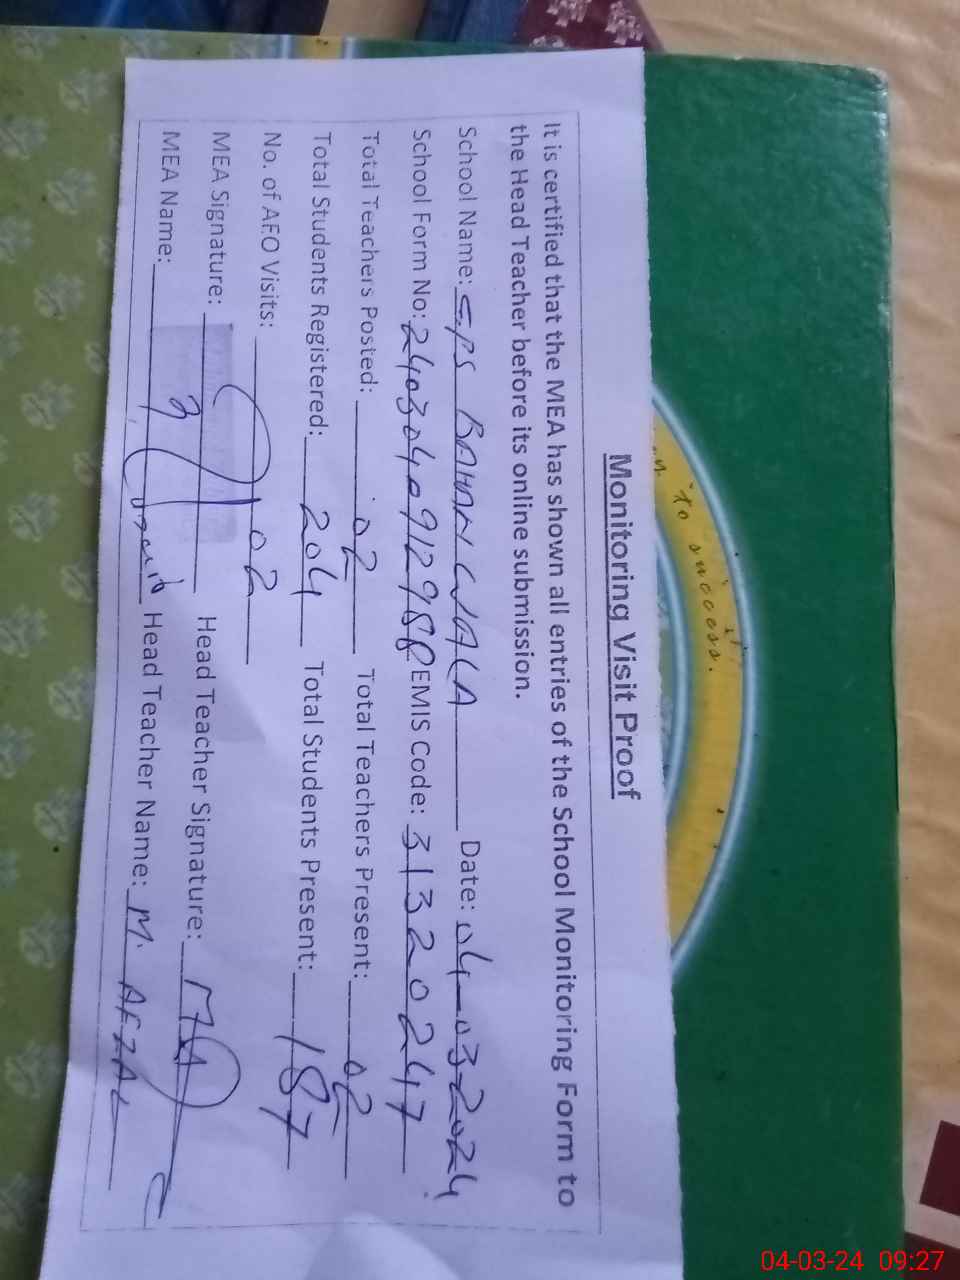 n to success.
Monitoring Visit Proof
It is certified that the MEA has shown all entries of the School Monitoring Form to
the Head Teacher before its online submission.
School Name: GPS BAHANWALA Date: 04-03-2024
School Form No: 2403040912988 EMIS Code: 31320247
Total Teachers Posted: 02 Total Teachers Present: 02
Total Students Registered: 204 Total Students Present: 187
No. of AEO Visits: 02
MEA Signature: Head Teacher Signature:
MEA Name: Head Teacher Name: M. AFZAL
04-03-24 09:27